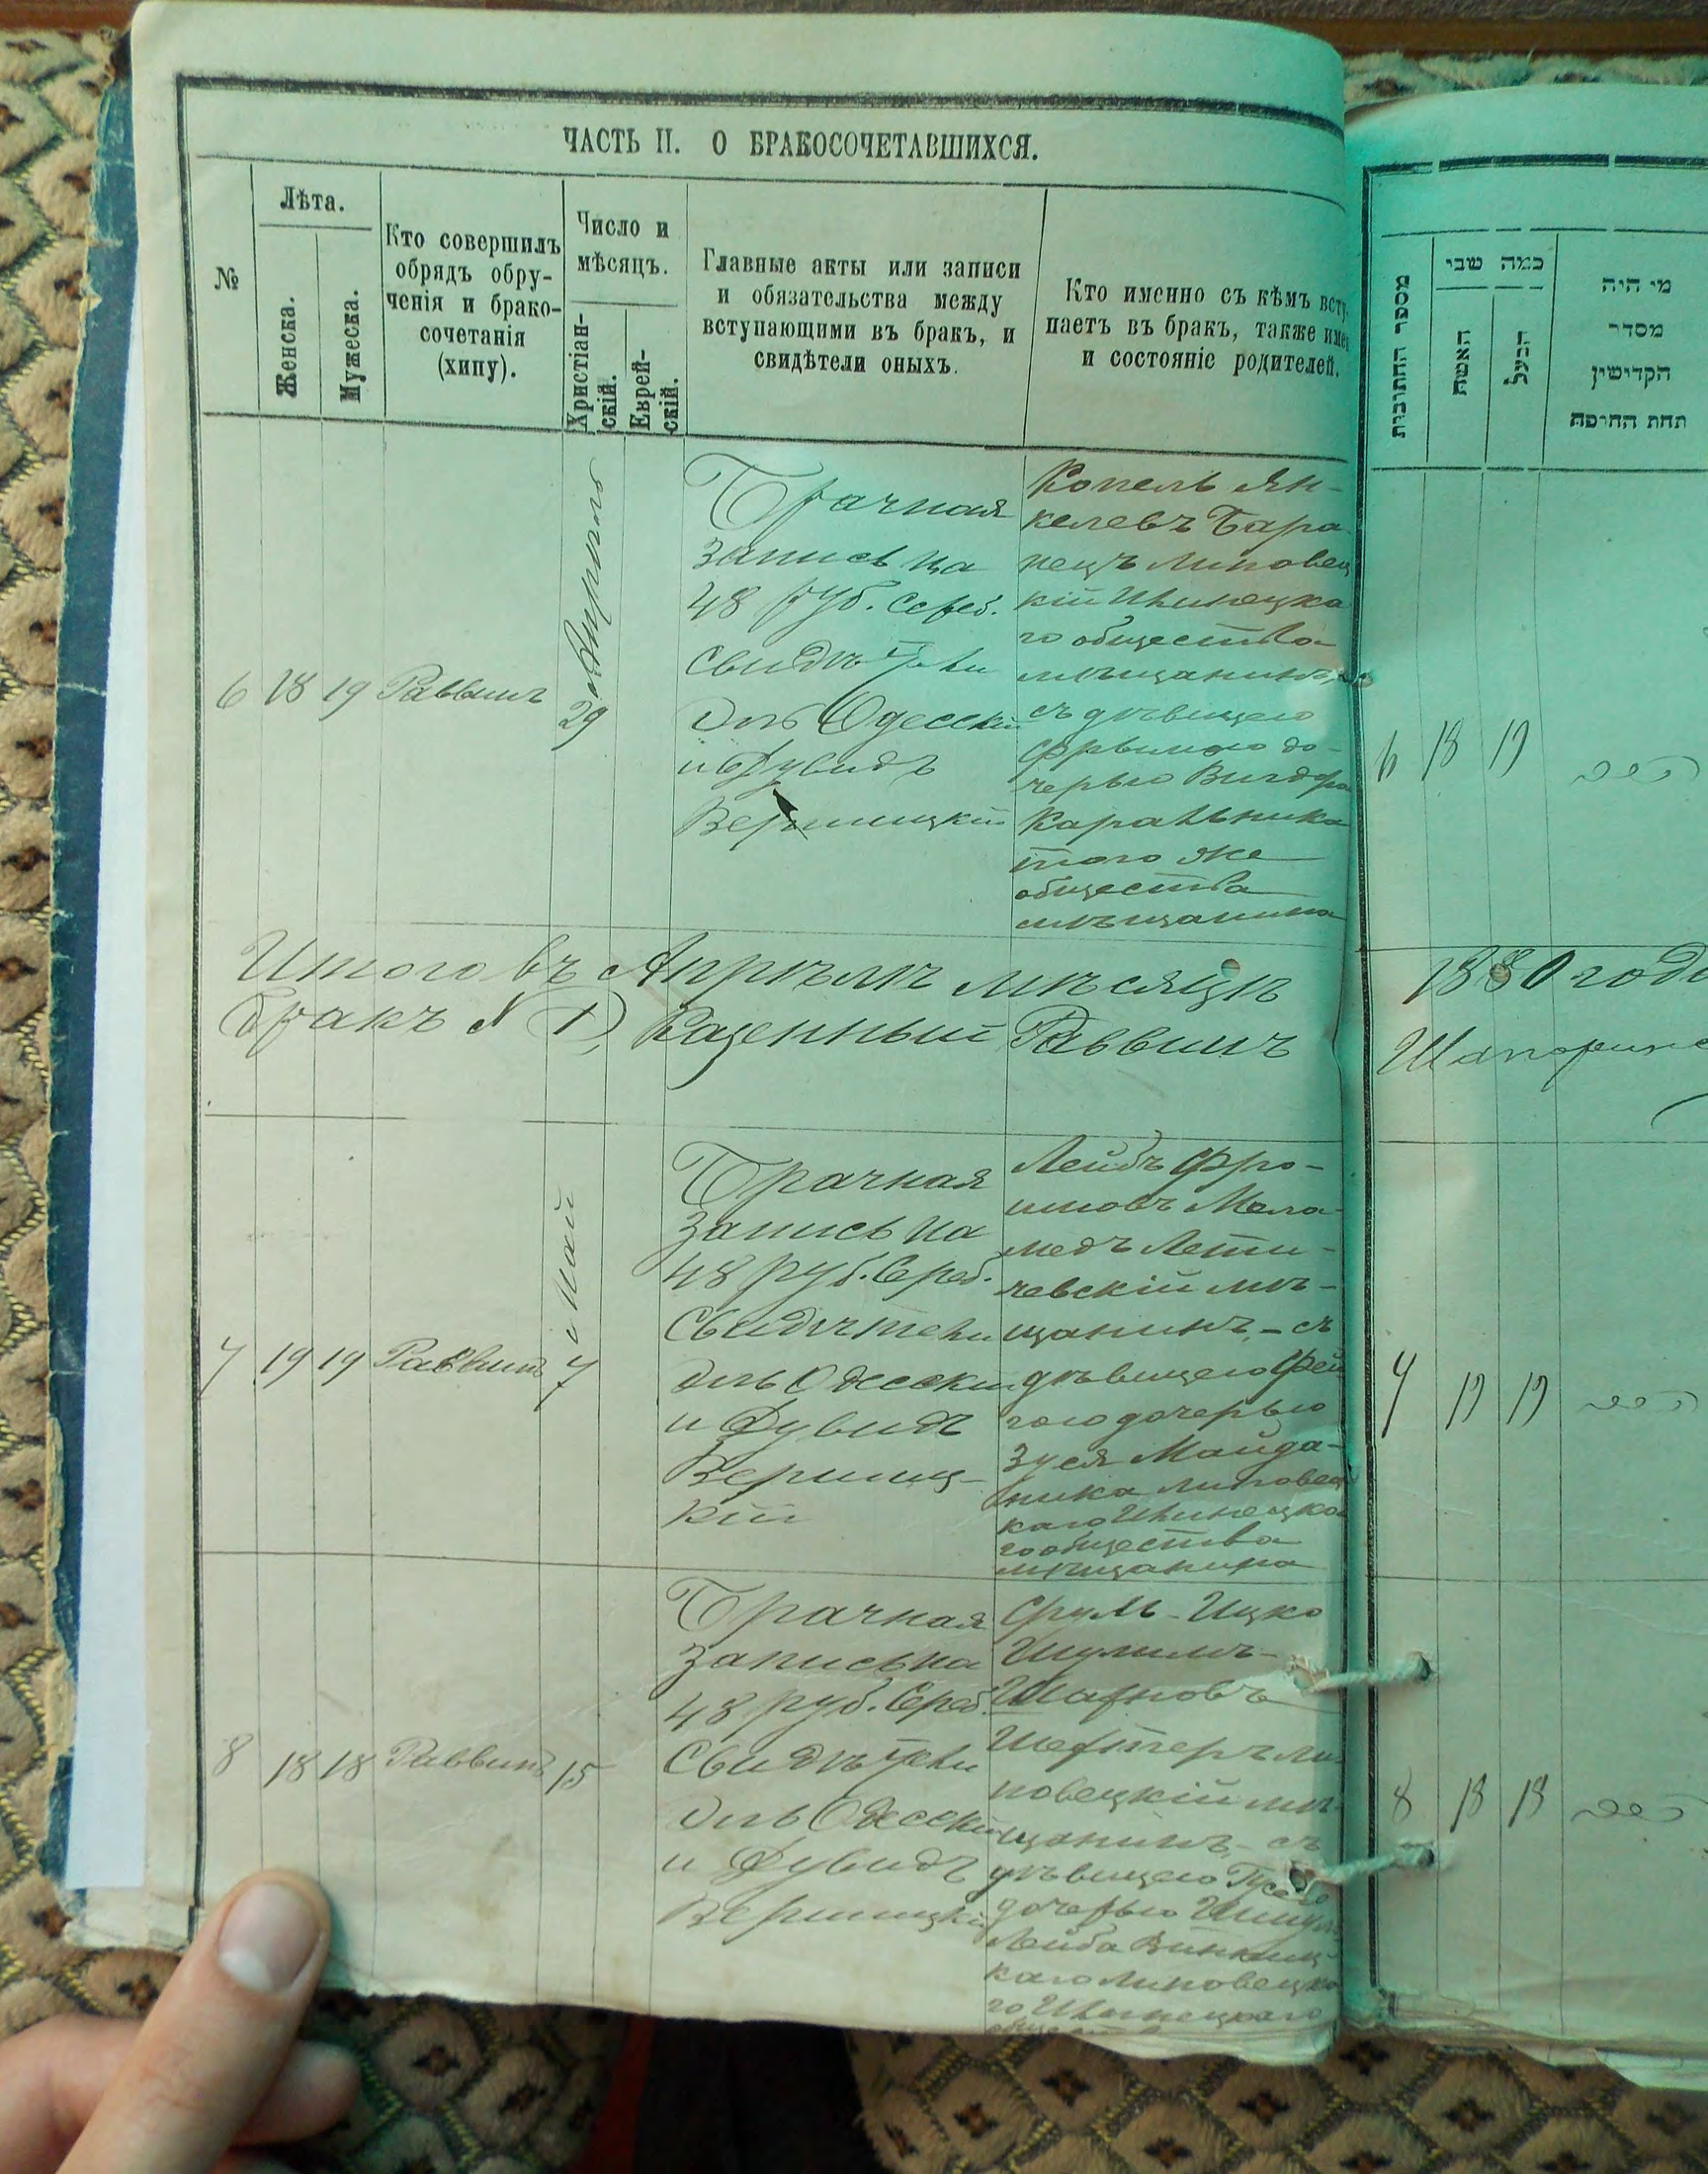 ЧАСТЬ II. О БРАКОСОЧЕТАВШИХСЯ.
№
Лѣта.
Женска.
Мужеска.
Кто совершилъ
обрядъ обру-
ченія и брако-
сочетанія
(хипу).
Число и
мѣсяцъ.
Христіан-
скій.
Еврей-
скій.
Главные акты или записи
и обязательства между
вступающими въ бракъ, и
свидѣтели оныхъ.
Кто именно съ кѣмъ всту
паетъ въ бракъ, также имя
и состояніе родителей.
6 18 19 Раввинъ
29
Брачная
запись на
48 руб. сереб.
свидѣтели
Одесскій
и Дувидъ
Вершицкій
Копель Ян-
келевъ Бара
нецъ липовец
кій Ильинецка
го общества
мѣщанинъ,
съ дѣвицею
Фрымою до-
черью Вигдора
Каральника
того же
общества
мѣщанина
Итого въ Апрѣлѣ мѣсяцѣ
бракъ N 1, Казенный Раввинъ
7 19 19 Раввинъ
Май
7
Брачная
запись на
48 руб. Сереб.
Свидѣтели
Одесскій
и Дувидъ
Вершиц-
кій
Лейбъ Фро-
имовъ Мела-
медъ Лети-
чевскій мѣ-
щанинъ, - съ
дѣвицею Фей
гою дочерью
Зуся Майда-
ника липовец
каго Ильинецка
го общества
мѣщанина
8 18 18 Раввинъ 15
Брачная
запись на
48 руб. Сереб.
Свидѣтели
Одесскій
и Дувидъ
Вершицкій
Сруль-Ицко
Шулимъ-
Шефтеръ ли
повецкій мѣ-
щанинъ, - съ
дѣвицею
дочерью
Лейба
каго Липовецка
го Ильинецкаго
מספר החתובות
כמה שני
האשה
הבעל
מי היה
מסדר
הקדישין
תחת החופה
6 18 19
1880 года
7 19 19
8 18 18